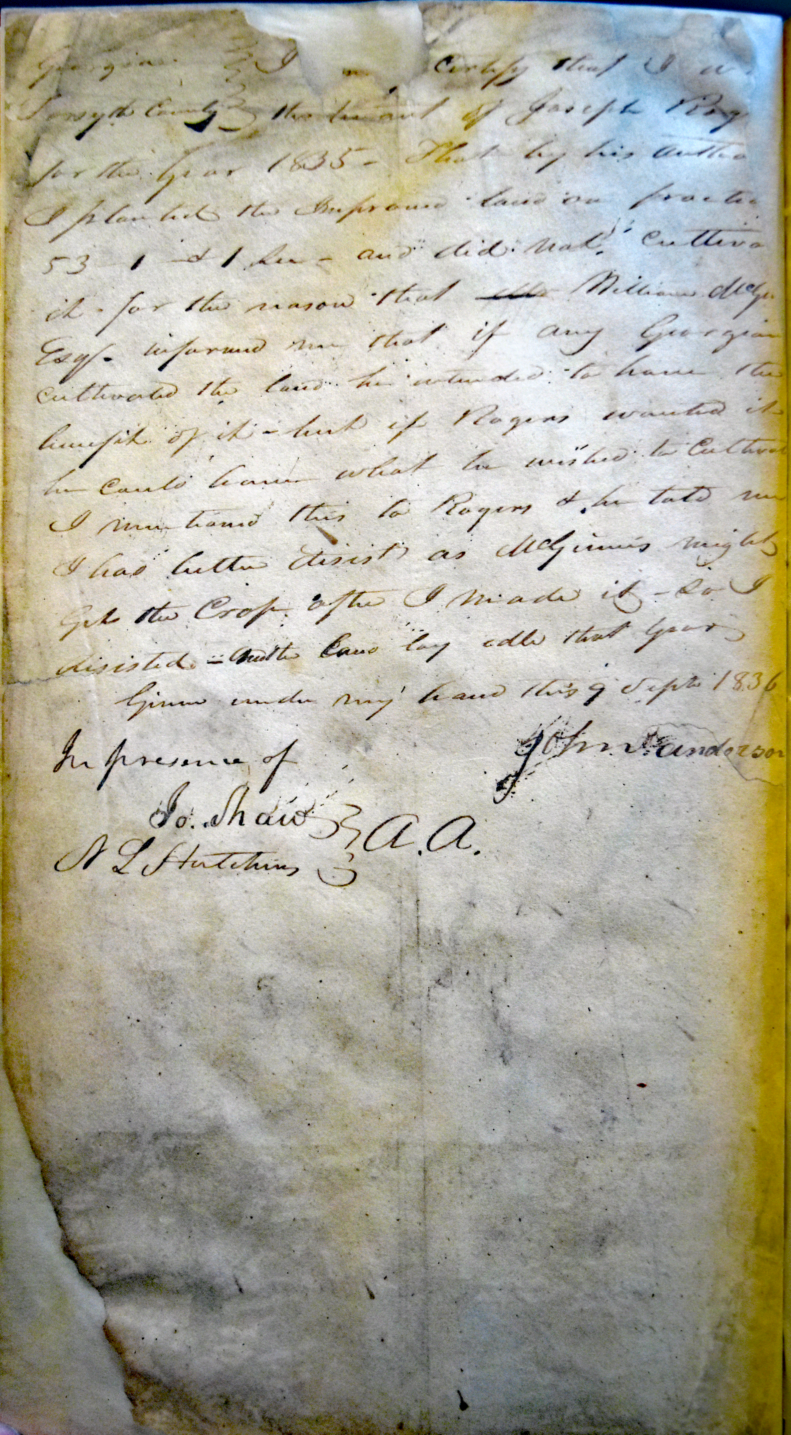 Georgia } I certify that I w
Forsyth County } the tenant of Joseph Rog
for the year 1835 - That by his autho
I planted the Improved land on fractio
53 - 1 & 1 Sec - and did not cultiva
it - for the reason that William McGi
Esqr. informed me that if any Georgian
cultivated the land he intended to have the
benefit of it - but if Rogers wanted it
he could have what he wished to cultivat
I mentioned this to Rogers & he told me
I had better desist as McGinnis might
get the Crop after I made it - so I
desisted - and the land lay idle that year
Given under my hand this 9 Sept 1836
John Sanderson
In presence of
Jo. Shaw }
A. A.
N L Hutchins }